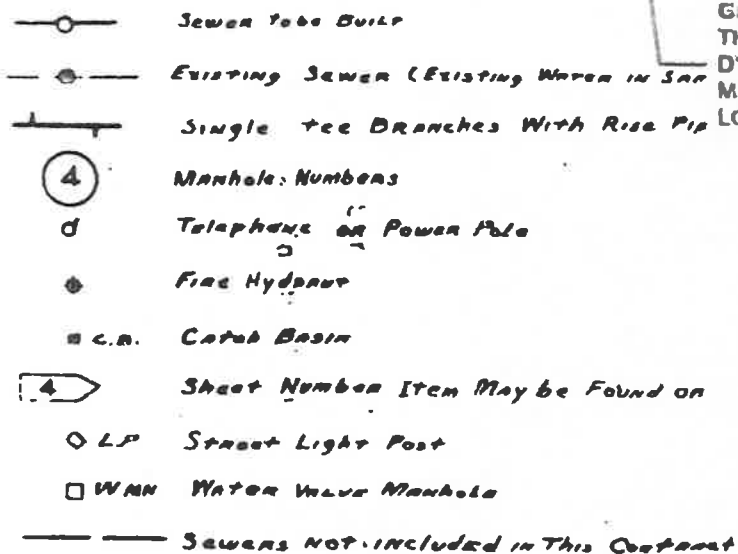 Sewer To be Built
Existing Sewer (Existing Water in
Single Tee Branches With Rise
4 Manhole: Numbers
Telephone or Power Pole
Fire Hydrant
C.B. Catch Basin
4 Sheet Number Item May be Found on
LP Street Light Post
WMH Water Valve Manhole
Sewers Not Included in This Contract